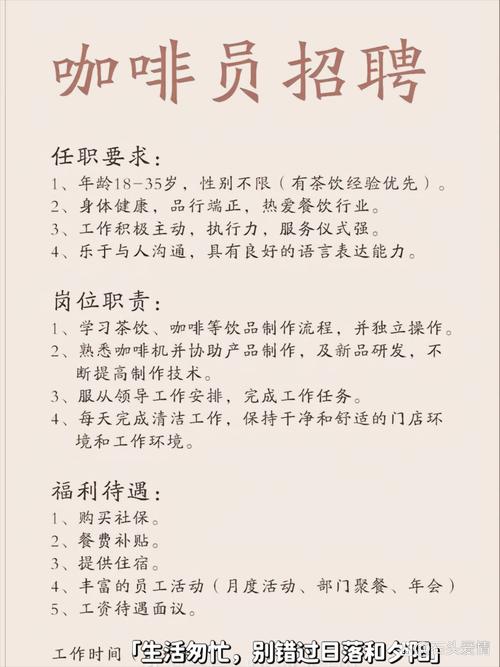 咖啡员招聘
任职要求：
1、年龄18-35岁，性别不限（有茶饮经验优先）。
2、身体健康，品行端正，热爱餐饮行业。
3、工作积极主动，执行力，服务仪式强。
4、乐于与人沟通，具有良好的语言表达能力。
岗位职责：
1、学习茶饮、咖啡等饮品制作流程，并独立操作。
2、熟悉咖啡机并协助产品制作，及新品研发，不
断提高制作技术。
3、服从领导工作安排，完成工作任务。
4、每天完成清洁工作，保持干净和舒适的门店环
境和工作环境。
福利待遇：
1、购买社保。
2、餐费补贴。
3、提供住宿。
4、丰富的员工活动（月度活动、部门聚餐、年会）
5、工资待遇面议。
工作时间
「生活匆忙，别错过日落和夕阳」
石头爱情